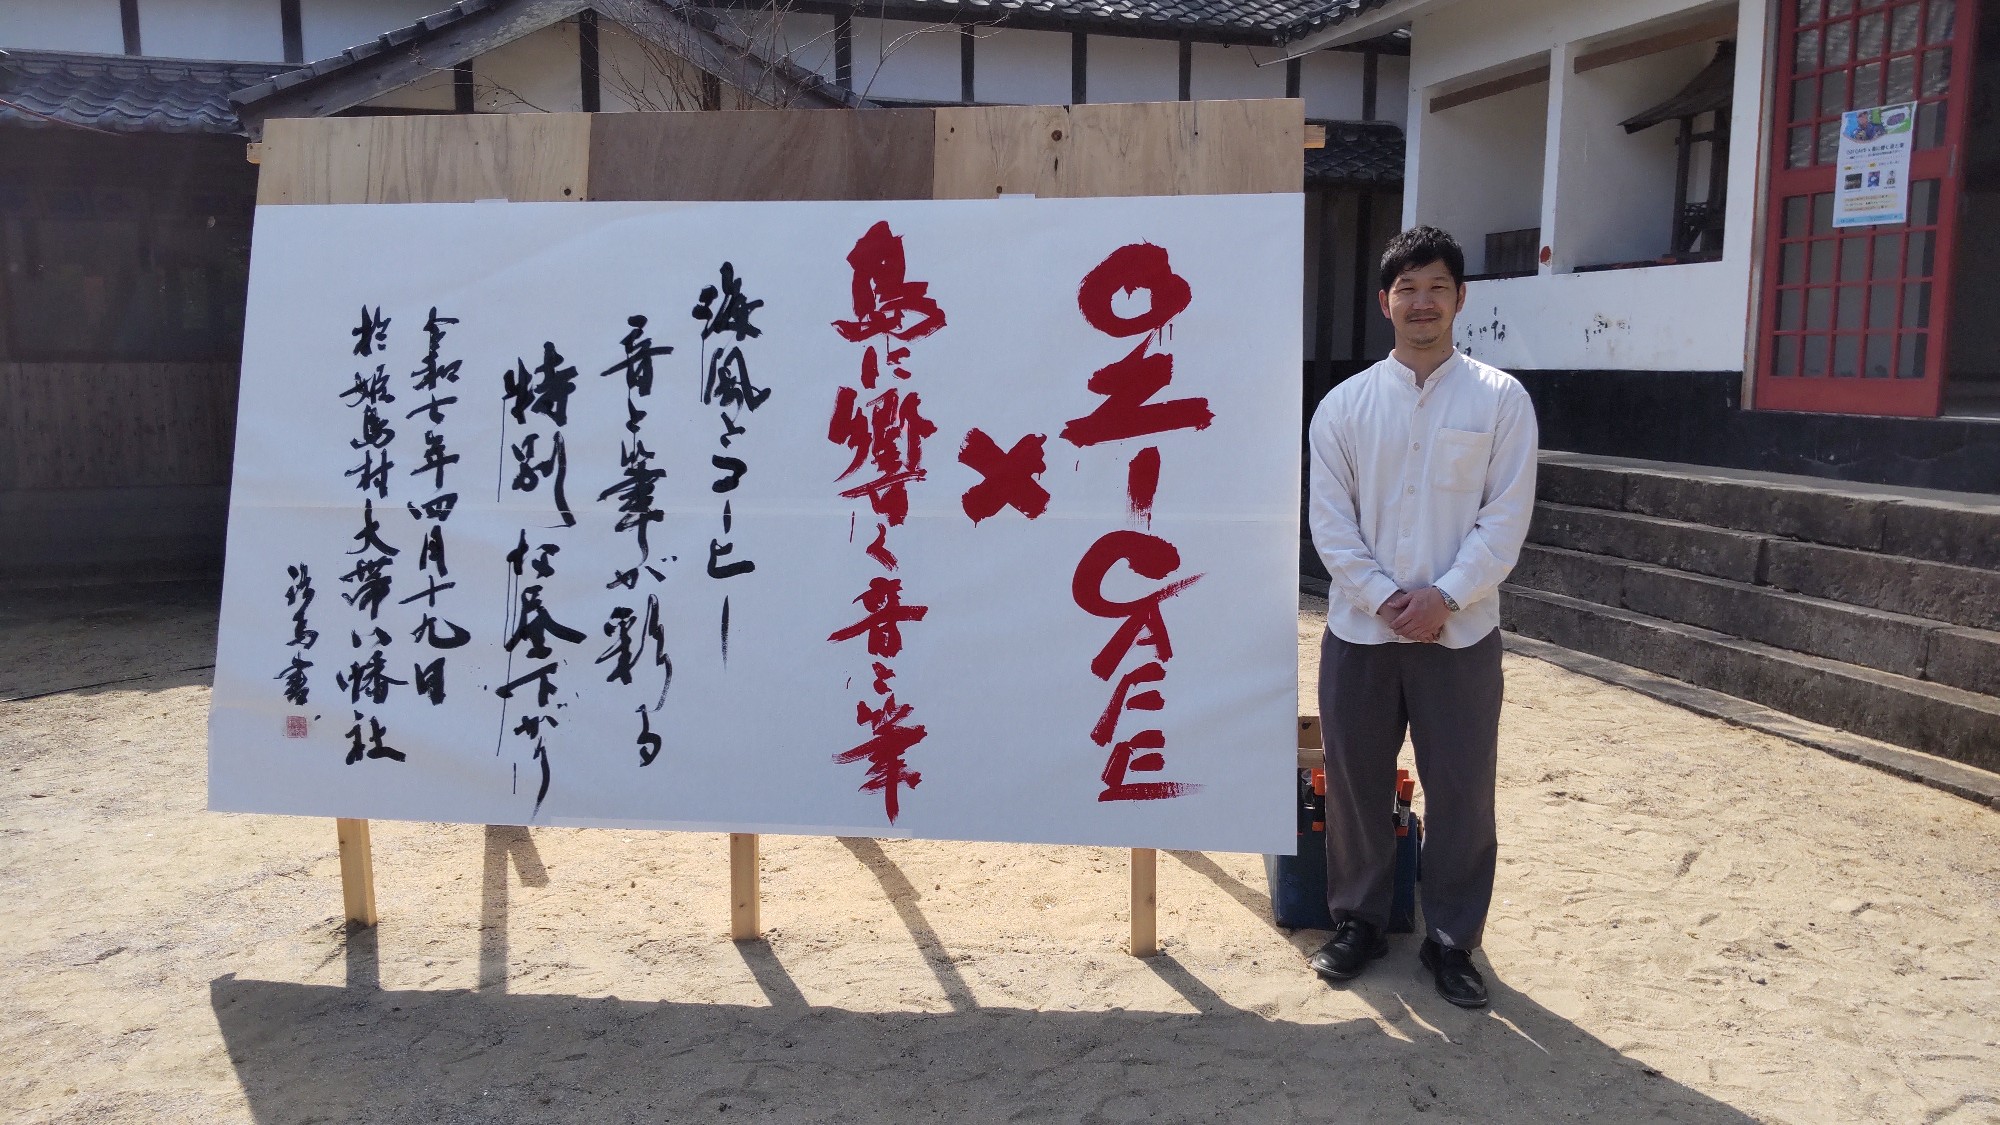 OZI CAFE
×
島に響く音と筆
海風とコーヒー
音と筆が彩る
特別な昼下がり
令和七年四月十九日
於姫島村大帯八幡社
書